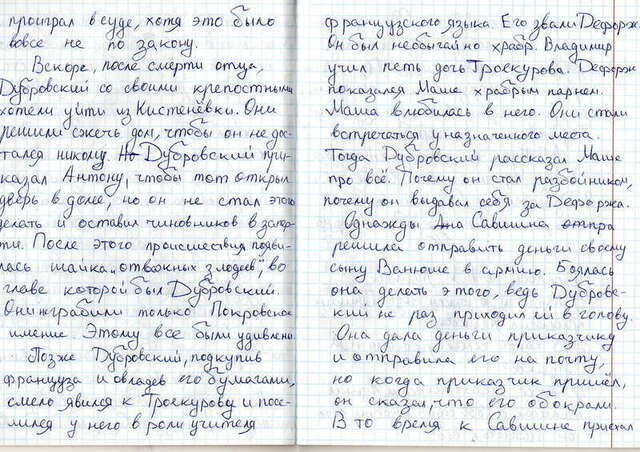 проиграл в суде, хотя это было
вовсе не по закону.
Вскоре, после смерти отца,
Дубровский со своими крепостными
хотели уйти из Кистенёвки. Они
решили сжечь дом, чтобы он не дос-
тался никому. Но Дубровский при-
казал Антону, чтобы тот открыл
дверь в доме, но он не стал этого
делать и оставил чиновников в запер-
ти. После этого происшествия появи-
лась шайка „отважных злодеев", во
главе которой был Дубровский.
Они грабили только Покровское
имение. Этому все были удивлены.
Позже Дубровский, подкупив
француза и овладев его бумагами,
смело явился к Троекурову и посе-
лился у него в роли учителя
французского языка. Его звали Дефорж.
Он был необычайно храбр. Владимир
учил петь дочь Троекурова. Дефорж
показался Маше храбрым парнем.
Маша влюбилась в него. Они стали
встречаться у назначенного места.
Тогда Дубровский рассказал Маше
про всё. Почему он стал разбойником,
почему он выдавал себя за Дефоржа.
Однажды Ана Савишна отпра
решила отправить деньги своему
сыну Ванюше в армию. Боялась
она делать этого, ведь Дубровс-
кий не раз приходил ей в голову.
Она дала деньги приказчику
и отправила его на почту,
но когда приказчик пришёл,
он сказал, что его обокрали.
В то время к Савишне приехал